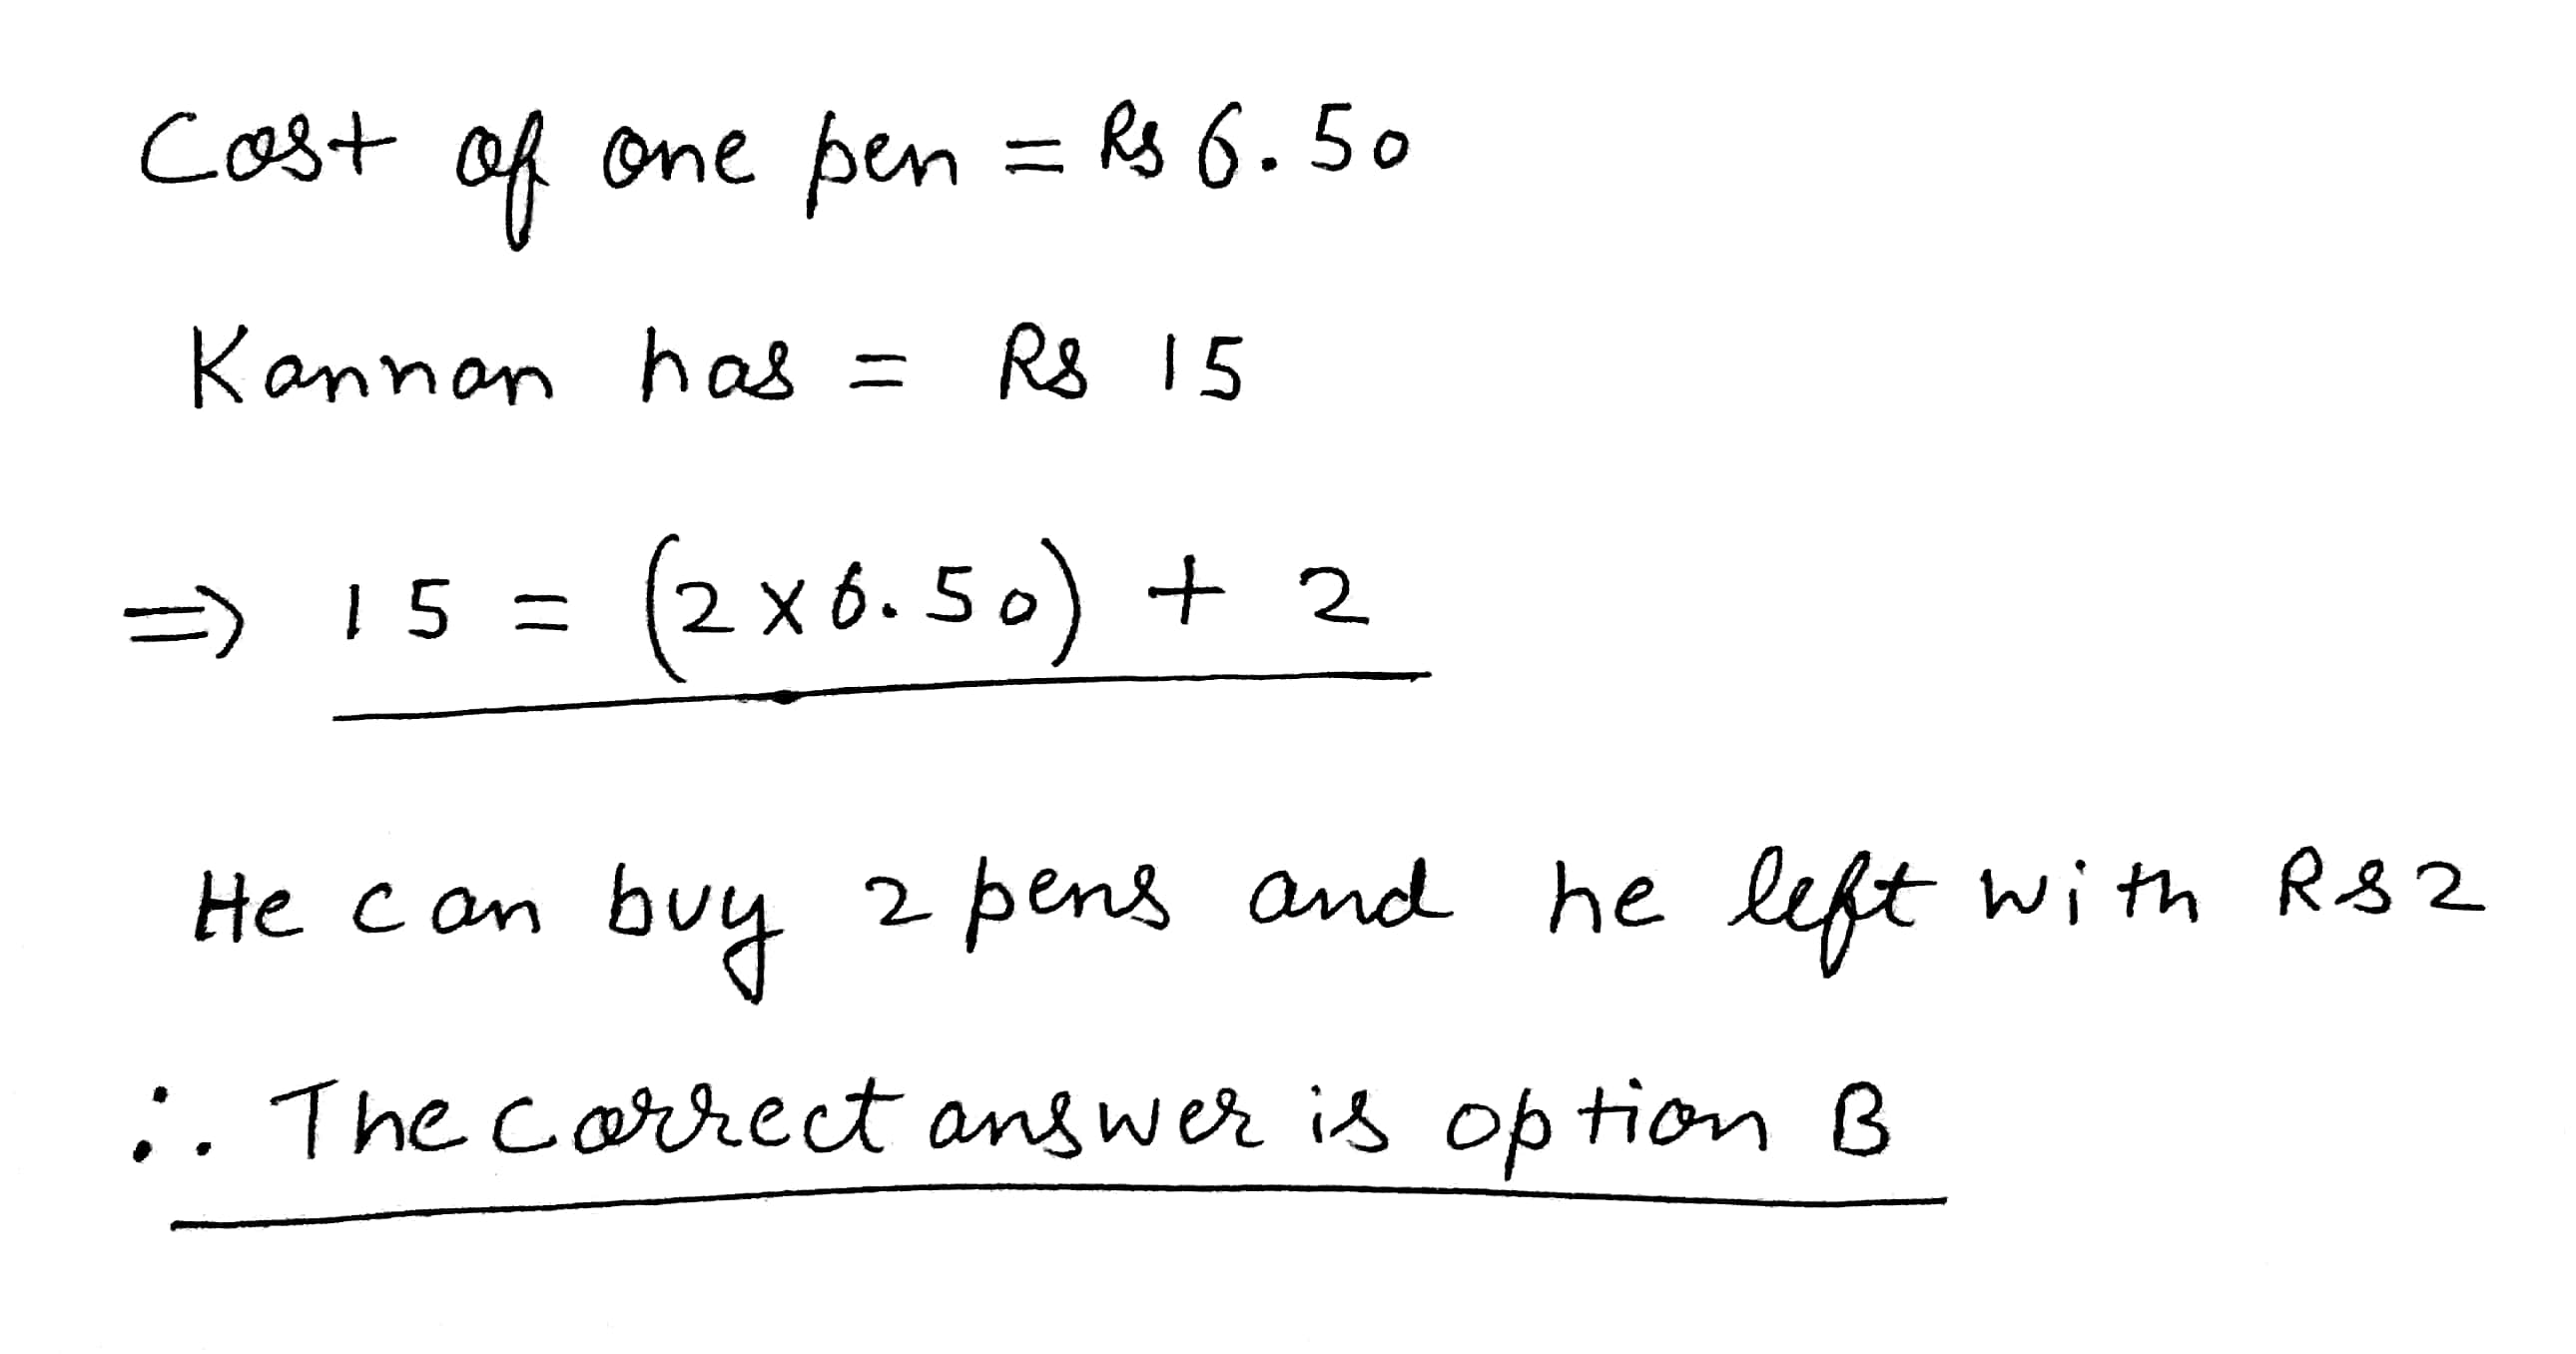 Cost of one pen = Rs 6.50
Kannan has = Rs 15
⇒ 15 = (2×6.50) + 2
He can buy 2 pens and he left with Rs 2
∴ The correct answer is option B